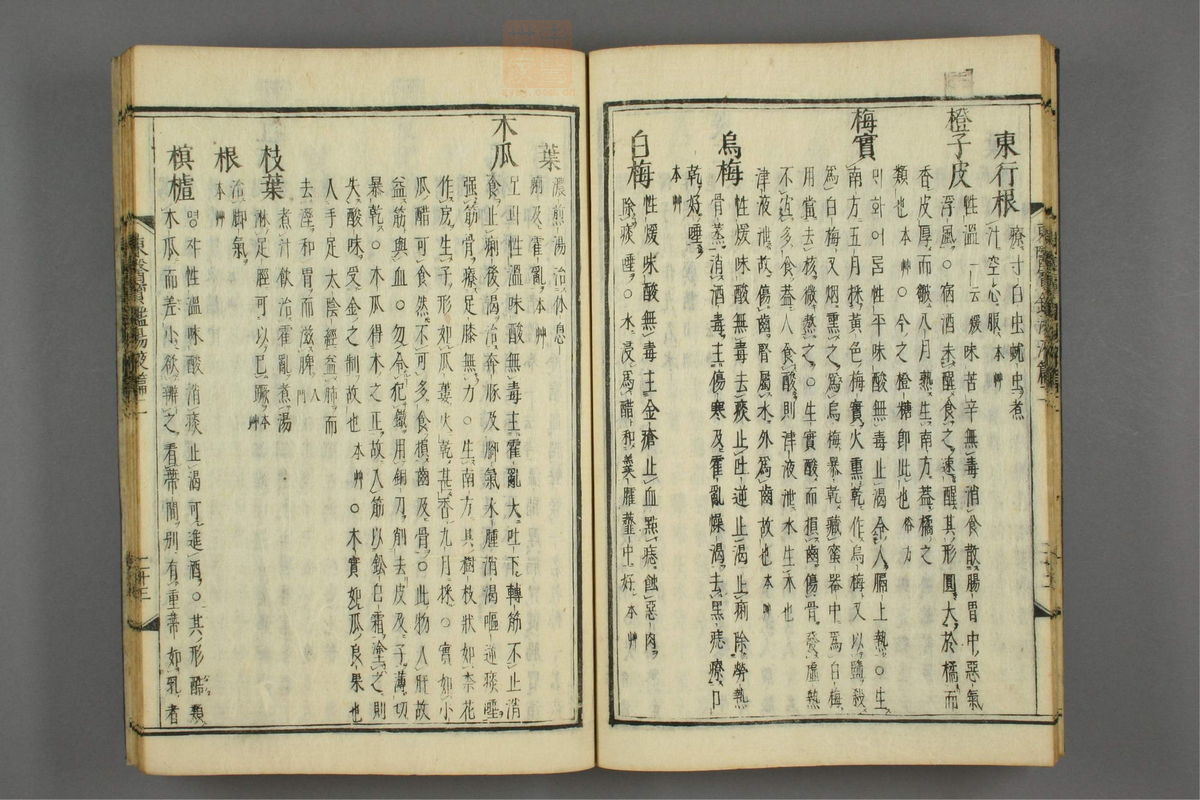 東行根 療寸白虫蚘虫煮
汁空心服本艸
橙子皮 性溫一云煖味苦辛無毒消食散腸胃中惡氣
浮風○宿酒未醒食之速醒其形圓大於橘而
香皮厚而皺八月熟生南方蓋橘之
類也本艸○今之橙糖卽此也俗方
梅實 ᄆᆡ화여름性平味酸無毒止渴令人膈上熱○生
南方五月採黃色梅實火熏乾作烏梅又以鹽殺
爲白梅又烟熏之爲烏梅暴乾藏蜜器中爲白梅
用當去核微熬之○生實酸而損齒傷骨發虛熱
不宜多食蓋人食酸則津液泄水生木也
津液泄故傷齒腎屬水外爲齒故也本艸
烏梅 性煖味酸無毒去痰止吐逆止渴止痢除勞熱
骨蒸消酒毒主傷寒及霍亂燥渴去黑痣療口
乾好唾本艸
白梅 性煖味酸無毒主金瘡止血點痣蝕惡肉
除痰唾○水浸爲醋和羹臛虀中好本艸
葉 濃煎湯治休息
痢及霍亂本艸
木瓜 모과性溫味酸無毒主霍亂大吐下轉筋不止消
食止痢後渴治奔豚及脚氣水腫消渴嘔逆痰唾
强筋骨療足膝無力○生南方其樹枝狀如柰花
作房生子形如瓜蔞火乾甚香九月採○實如小
瓜醋可食然不可多食損齒及骨○此物入肝故
益筋與血○勿令犯鐵用銅刀削去皮及子薄切
暴乾○木瓜得木之正故入筋以鉛白霜塗之則
失酸味受金之制故也本艸○木實如瓜良果也
入手足太陰經益肺而
去濕和胃而滋脾入門
枝葉 煮汁飮治霍亂煮湯
淋足脛可以已蹶本艸
根 治脚氣本艸
榠樝 명쟈性溫味酸消痰止渴可進酒○其形酷類
木瓜而差小欲辨之看蒂間別有重蒂如乳者
東醫寶鑑湯液篇二
二十三